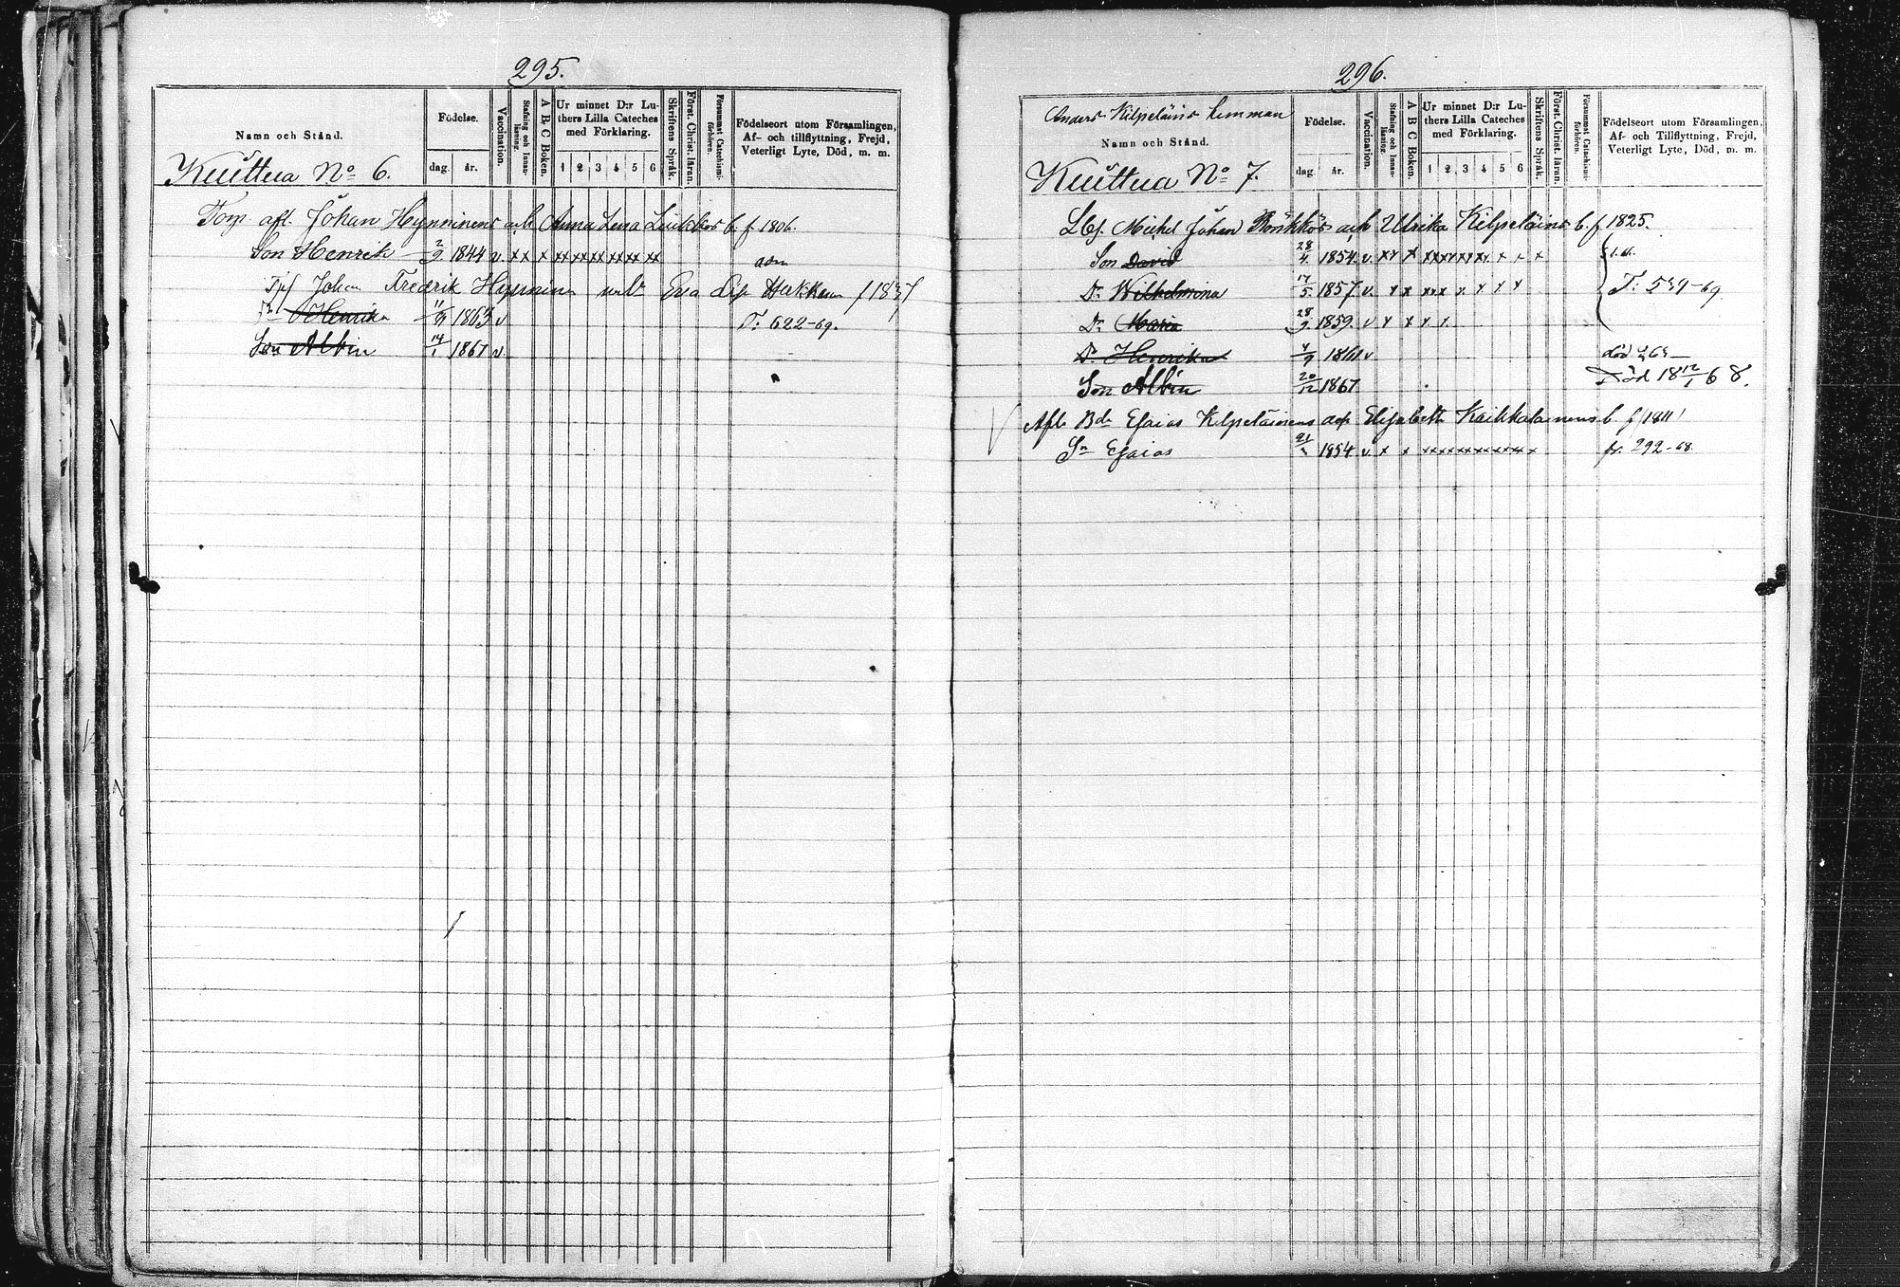 295.
Namn och Stånd.
Födelse.
dag. år.
Vaccination.
Stafning och Innanläsning.
A B C Boken.
Ur minnet D:r Luthers Lilla Cateches med Förklaring.
1 2 3 4 5 6
Skriftens Språk.
Först. Christ. läran.
Försummat Catechismiförhören.
Födelseort utom Församlingen, Af- och tillflyttning, Frejd, Veterligt Lyte, Död, m. m.
Kuittua No 6.
Torp. afl. Johan Hynninens och Anna Lena b. f 1806.
Son Henrik 2/9 1844 v. x x x x x x x x x x x
Johan Fredrik Hynninen Eva f 1837
Henrika 1863 v T: 622-69.
Son Albin 14/1 1867 v
296.
Anders Kilpeläins hemman
Namn och Stånd.
Födelse.
dag. år.
Vaccination.
Stafning och Innanläsning.
A B C Boken.
Ur minnet D:r Luthers Lilla Cateches med Förklaring.
1 2 3 4 5 6
Skriftens Språk.
Först. Christ. läran.
Försummat Catechismiförhören.
Födelseort utom Församlingen, Af- och Tillflyttning, Frejd, Veterligt Lyte, Död, m. m.
Kuittua No 7.
Michel Johan Rönkkös och Ulrika Kilpeläins b. f 1825.
Son David 28/4 1854 v. x x x x x x x x x x x x
Dr Wilhelmina 17/5 1857 v. x x x x x x x x x T: 539-69
Dr Maria 28/9 1859. v x x x x
Dr Henrika 4/9 1861 v död 65
Son Albin 20/12 1867 Död 18 12/1 68.
Afl. Bd. Esaias Kilpeläinens och Elisabeth Kaikkalainens b. f 1811
Sn Esaias 21 1854 v. x x x x x x x x x x x fr. 292-68